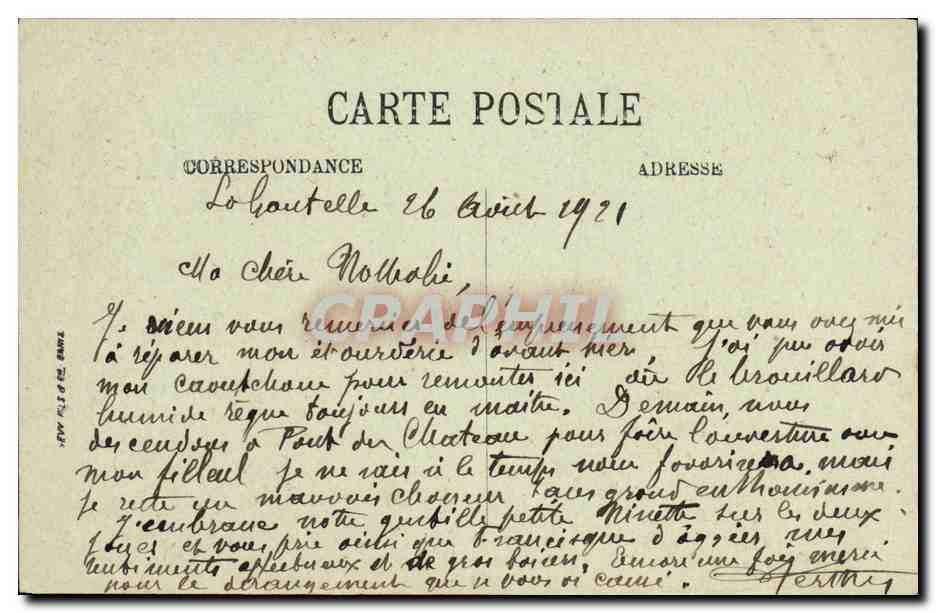 CARTE POSTALE
CORRESPONDANCE ADRESSE
26 Août 1921
Ma chère Nathalie,
Je viens vous remercier de l'empressement que vous avez mis
à réparer mon étourderie d'avant hier. J'ai pu avoir
mon caoutchouc pour remonter ici où le brouillard
humide règne toujours en maître. Demain, nous
descendons à Pont du Chateau pour faire l'ouverture avec
mon filleul je ne sais si le temps nous favorisera, mais
je reste un mauvais chasseur sans grand enthousiasme.
J'embrasse notre gentille petite Ninette sur les deux
joues et vous prie ainsi que Francisque d'agréer, mes
sentiments affectueux et de gros baisers. Encore une fois merci
pour le dérangement que je vous ai causé.
CRAPHIL